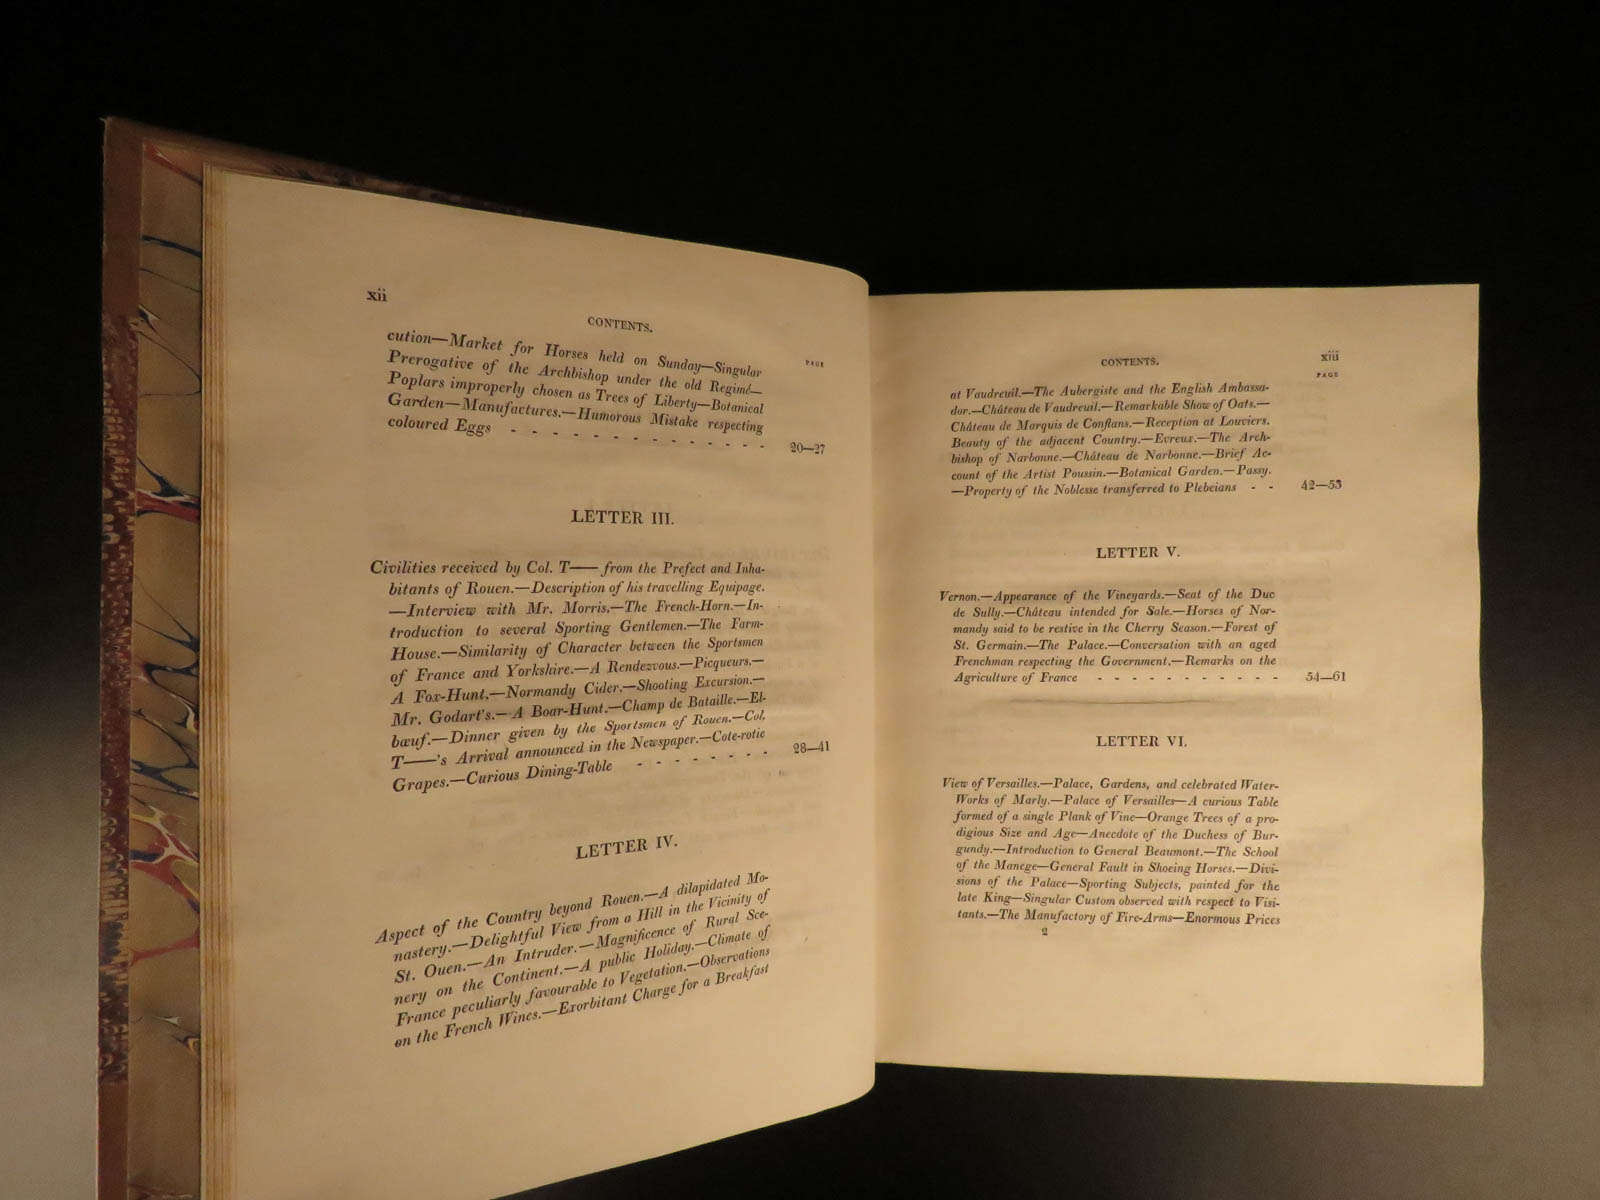 xii
CONTENTS.
PAGE
cution—Market for Horses held on Sunday—Singular
Prerogative of the Archbishop under the old Regimé—
Poplars improperly chosen as Trees of Liberty—Botanical
Garden—Manufactures.—Humorous Mistake respecting
coloured Eggs - - - - - - - - - - - - - 20—27
LETTER III.
Civilities received by Col. T—— from the Prefect and Inha-
bitants of Rouen.—Description of his travelling Equipage.
—Interview with Mr. Morris.—The French-Horn.—In-
troduction to several Sporting Gentlemen.—The Farm-
House.—Similarity of Character between the Sportsmen
of France and Yorkshire.—A Rendezvous.—Picqueurs.—
A Fox-Hunt.—Normandy Cider.—Shooting Excursion.—
Mr. Godart's.—A Boar-Hunt.—Champ de Bataille.—El-
bœuf.—Dinner given by the Sportsmen of Rouen.—Col.
T——'s Arrival announced in the Newspaper.—Cote-rotie
Grapes.—Curious Dining-Table - - - - - - - - 28—41
LETTER IV.
Aspect of the Country beyond Rouen.—A dilapidated Mo-
nastery.—Delightful View from a Hill in the Vicinity of
St. Ouen.—An Intruder.—Magnificence of Rural Sce-
nery on the Continent.—A public Holiday.—Climate of
France peculiarly favourable to Vegetation.—Observations
on the French Wines.—Exorbitant Charge for a Breakfast
CONTENTS.
xiii
PAGE
at Vaudreuil.—The Aubergiste and the English Ambassa-
dor.—Château de Vaudreuil.—Remarkable Show of Oats.—
Château de Marquis de Conflans.—Reception at Louviers.
Beauty of the adjacent Country.—Evreux.—The Arch-
bishop of Narbonne.—Château de Narbonne.—Brief Ac-
count of the Artist Poussin.—Botanical Garden.—Passy.
—Property of the Noblesse transferred to Plebeians - - 42—53
LETTER V.
Vernon.—Appearance of the Vineyards.—Seat of the Duc
de Sully.—Château intended for Sale.—Horses of Nor-
mandy said to be restive in the Cherry Season.—Forest of
St. Germain.—The Palace.—Conversation with an aged
Frenchman respecting the Government.—Remarks on the
Agriculture of France - - - - - - - - - - - 54—61
LETTER VI.
View of Versailles.—Palace, Gardens, and celebrated Water-
Works of Marly.—Palace of Versailles—A curious Table
formed of a single Plank of Vine—Orange Trees of a pro-
digious Size and Age—Anecdote of the Duchess of Bur-
gundy.—Introduction to General Beaumont.—The School
of the Manege—General Fault in Shoeing Horses.—Divi-
sions of the Palace—Sporting Subjects, painted for the
late King—Singular Custom observed with respect to Visi-
tants.—The Manufactory of Fire-Arms—Enormous Prices
2